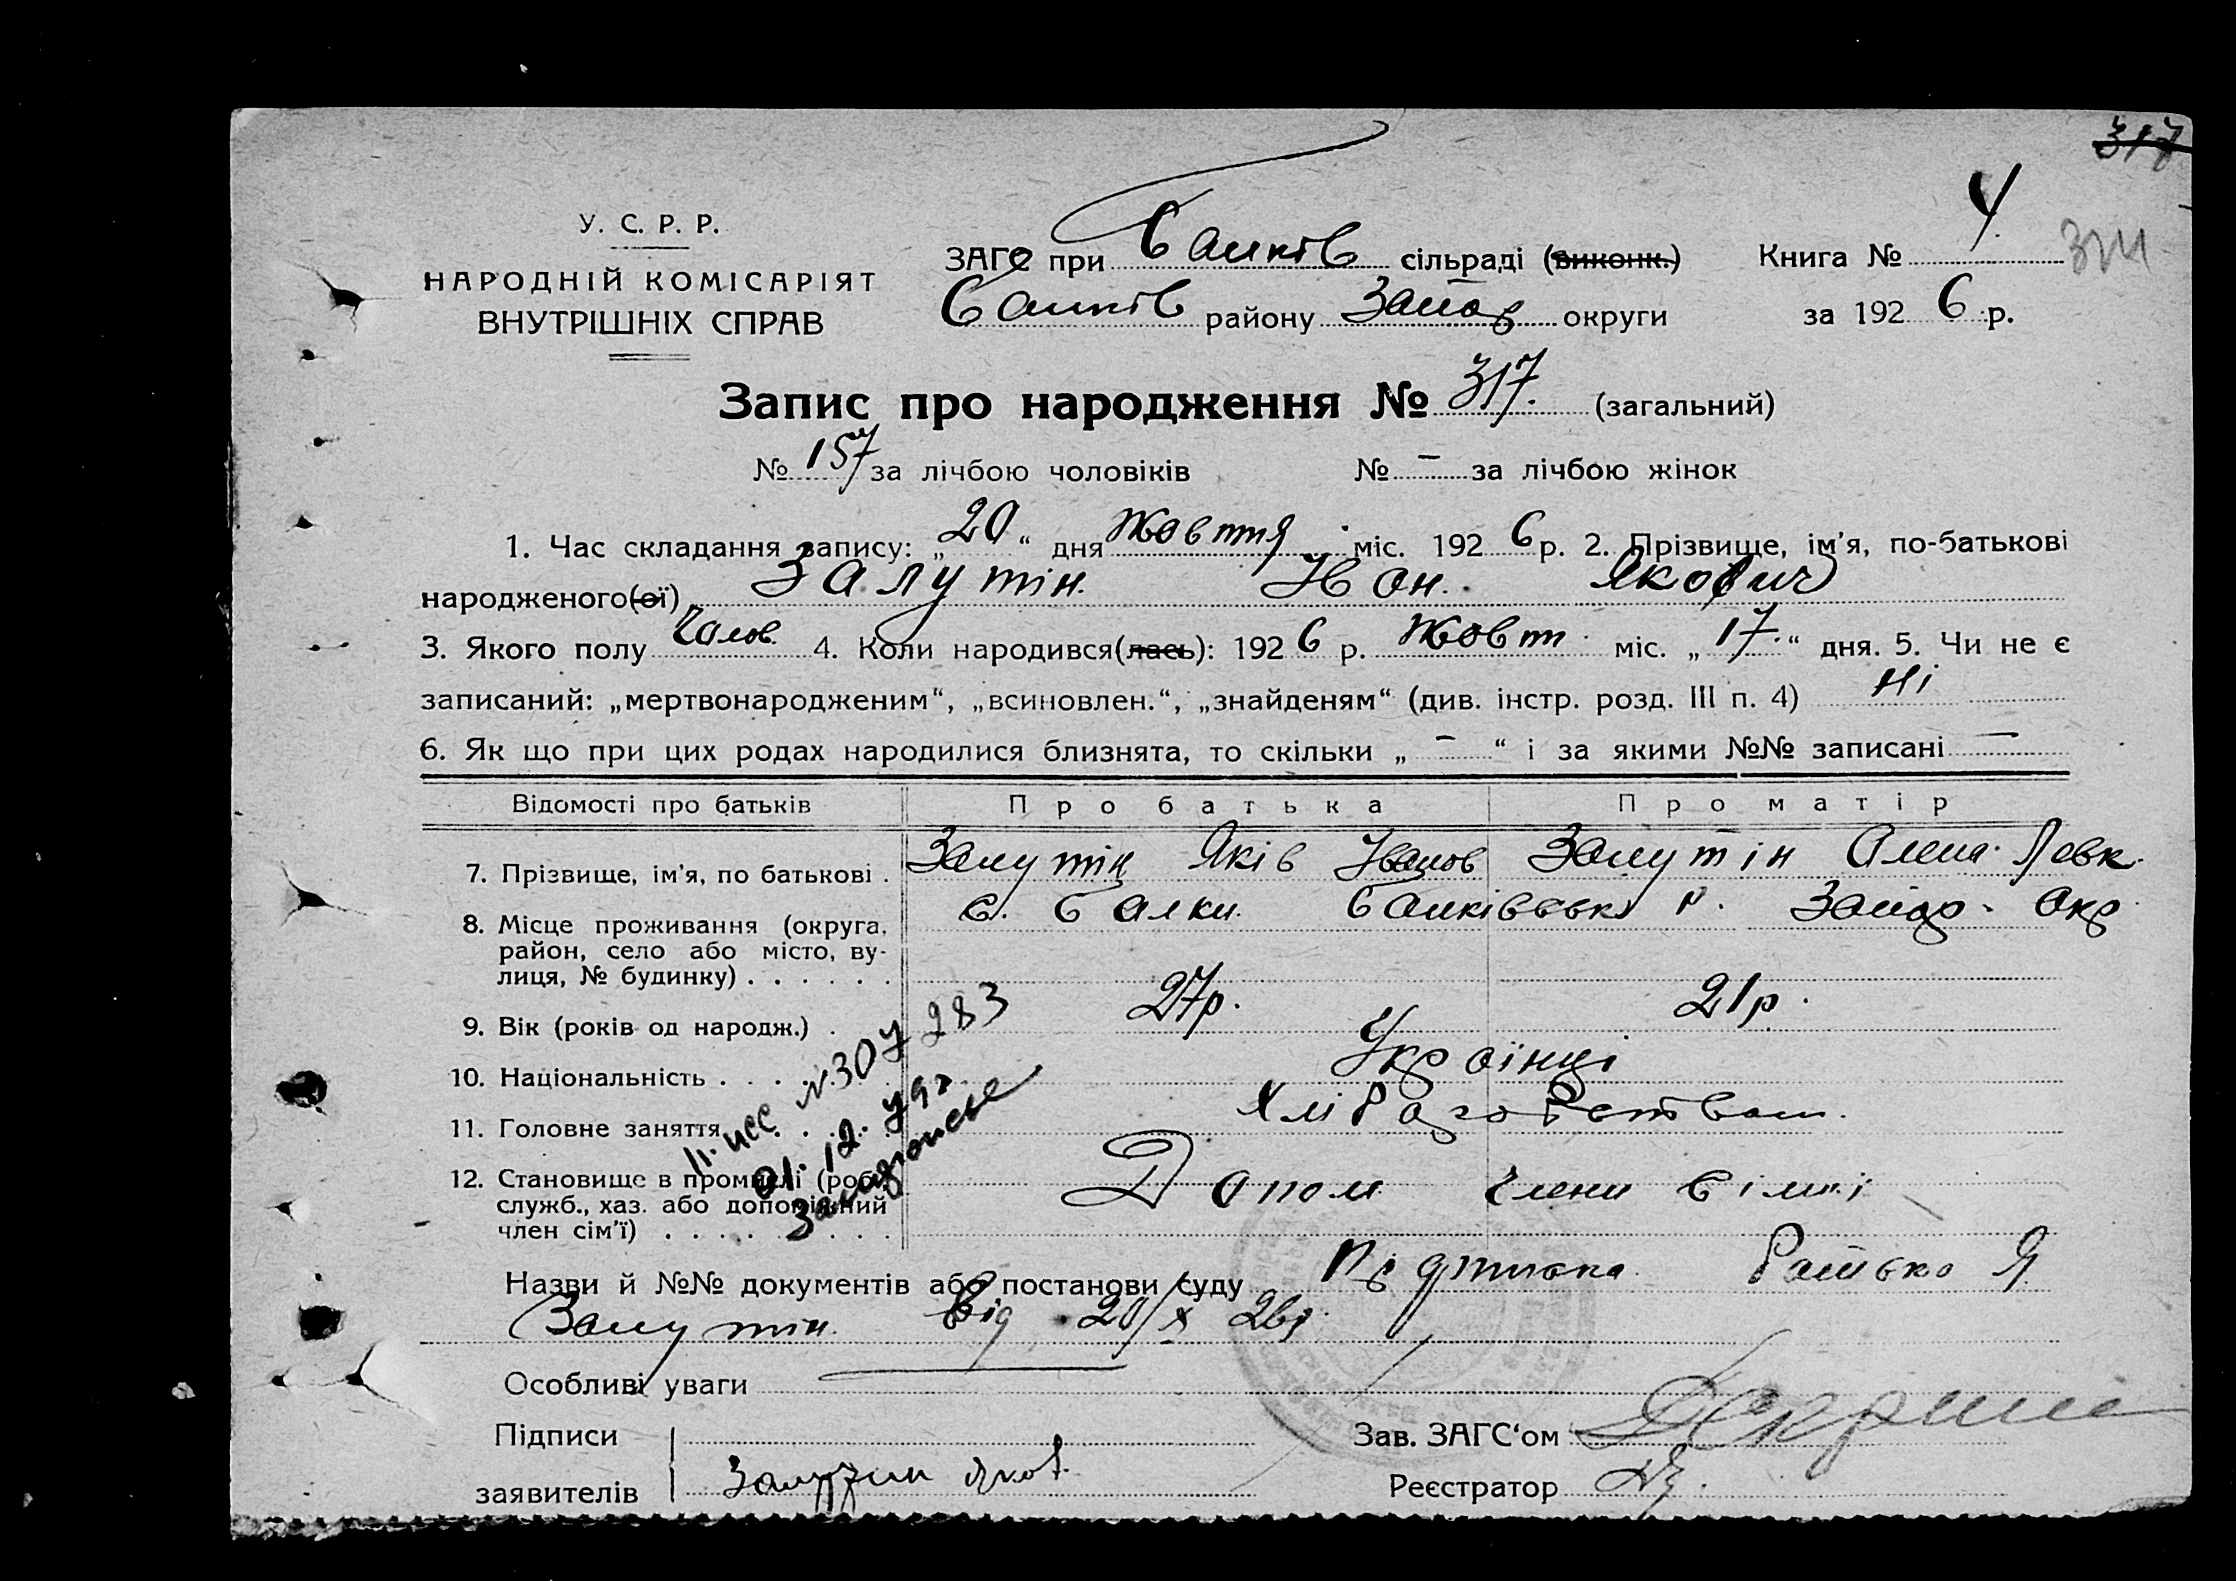 317
У. С. Р. Р.
НАРОДНІЙ КОМІСАРІЯТ
ВНУТРІШНІХ СПРАВ
ЗАГС при Балків сільраді (виконк.)
Балків району Запор округи
Книга № 4
314
за 192 6 р.
Запис про народження № 317. (загальний)
№ 157 за лічбою чоловіків № – за лічбою жінок
1. Час складання запису: „ 20 “ дня жовтня міс. 192 6 р. 2. Прізвище, ім'я, по-батькові
народженого(ої) Залутін. Ів ан. Якович
3. Якого полу Чолов. 4. Коли народився(лась): 192 6 р. жовт міс. „ 17. “ дня. 5. Чи не є
записаний: „мертвонародженим“, „всиновлен.“, „знайденям“ (див. інстр. розд. III п. 4) Ні
6. Як що при цих родах народилися близнята, то скільки „ – “ і за якими №№ записані –
Відомості про батьків Про батька Про матір
7. Прізвище, ім'я, по батькові . Залутін Яків Іванов Залутін Олена Левк.
8. Місце проживання (округа, район, село або місто, ву- лиця, № будинку) . . . . . . с. Балки. Балківськ р. Запор. Окр
9. Вік (років од народж.) . 27р. 21р.
10. Національність . . . . Українці
11. Головне заняття . . . . Хліборобством.
12. Становище в промислі (роб., служб., хаз. або допоміжний член сім'ї) . . . . . . . . . Допом члени сімї
№307283
01.12.79г
Назви й №№ документів або постанови суду
Залутін від 20/X 26р.
Особливі уваги
Підписи
заявителів Залутин Яков
Зав. ЗАГС'ом
Реєстратор